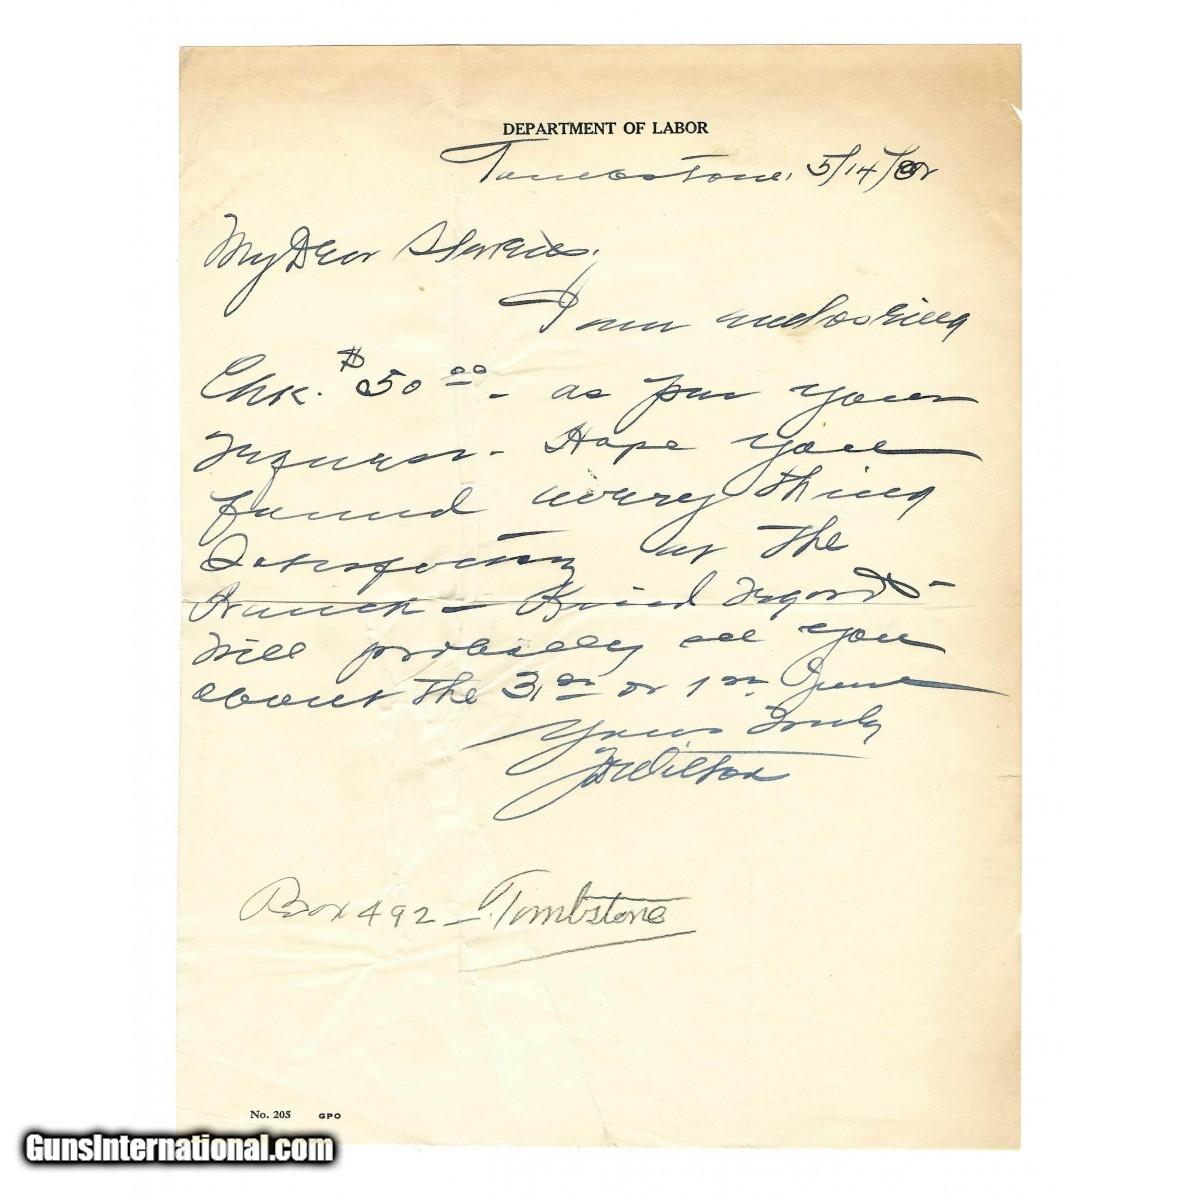 DEPARTMENT OF LABOR
Tombstone, 5/14/
My Dear
I am enclosing
Chk. $50.00 - as per your
request - Hope you
found every thing
Satisfactory at the
Ranch - Kind regards -
Will probably see you
about the 31st or 1st June
Yours Truly
Wilson
Box 492 - Tombstone
No. 205 GPO
GunsInternational.com